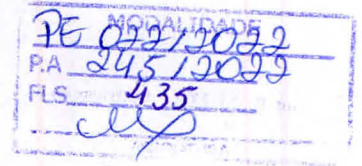 MODALIDADE
PE 022/2022
P.A 245/2022
FLS. 435